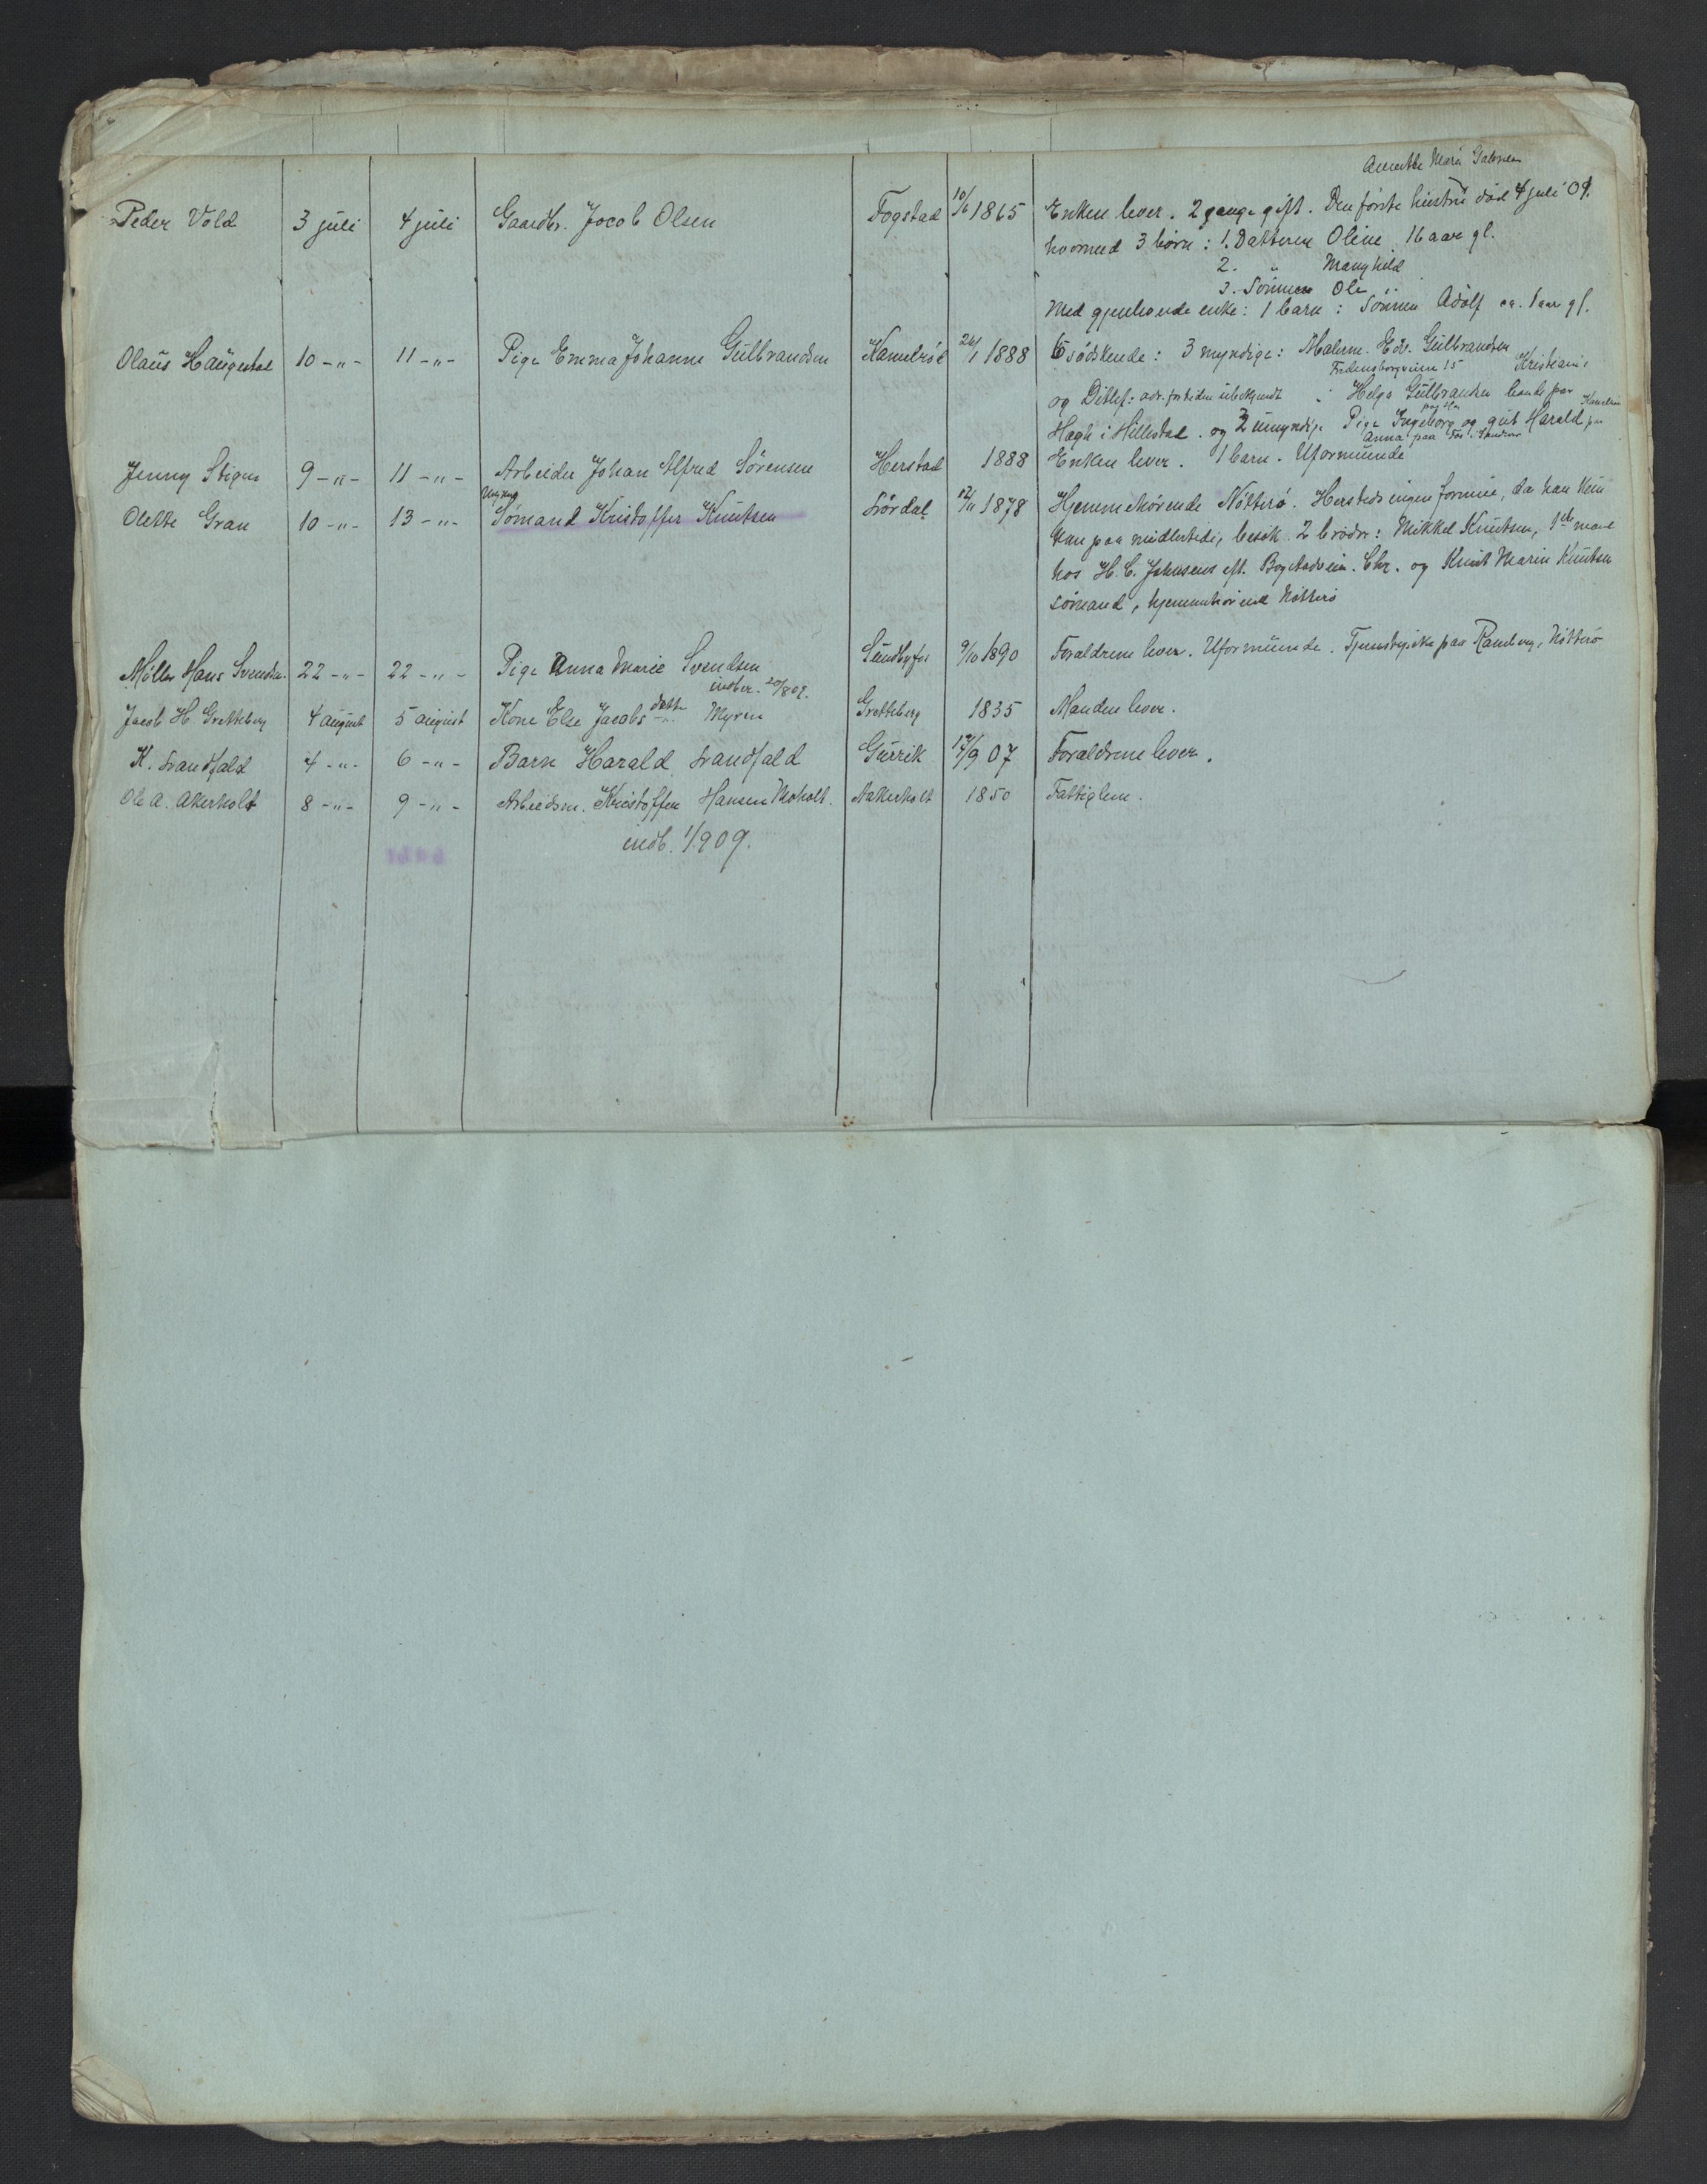 Annette Marie
Peder Vold 3 juli 4 juli Gaardbr. Jacob Olsen Fogstad 10/6 1865 Enken lever. 2 gange gift. Den förste hustru död 4 juli 09.
hvormed 3 börn: 1. Datteren Oline 16 aar gl.
2. " Manghild
3. Sönnen Ole
Med gjenlevende enke: 1 barn: Sönnen Adolf ca. 1 aar gl.
Olaus Haugestad 10 -"- 11 -"- Pige Emma Johanne Gulbrandsen Kamelröd 26/1 1888 6 södskende: 3 myndige: Malerm. Edv. Gulbrandsen
Fredensborgveien 15 Kristiania
og Ditlef: adr. fortiden ubekjendt Helga Gulbrandsen
Hægh i Hillestad. og 2 umyndige Pige Ingeborg og gut Harald paa
Anna paa
Jenny Stigen 9 -"- 11 -"- Arbeider Johan Alfred Sörensen Herstad 1888 Enken lever. 1 barn. Uformuende
Ungkarl
Olette Gran 10 -"- 13 -"- Sömand Kristoffer Knutsen Lördal 12/11 1878 Hjemmehörende Nötterö. Hersteds ingen formue, da han kun
kun paa midlertidig besök. 2 brödre: Mikkel Knutsen, 1ste mand
hos H. C. Johnsens eft. Bogstadveien. Chr. og Knut Marin Knutsen
sömand, hjemmehörende Nötterö
Möller Hans Svendsen 22 -"- 22 -"- Pige Anna Marie Svendsen Sundbyfos 9/10 1890 Foraldrene lever. Uformuende. Tjenestepike paa Ramberg, Nötterö
indber. 20/8 09.
Jacob H. Gretteberg 4 august 5 august Kone Else Jacobsdatter Myren Gretteberg 1835 Manden lever.
K. Svandfald 4 -"- 6 -"- Barn Harald Svandfald Gurrik 17/9 07 Foraldrene lever.
Ole A. Akerholt 8 -"- 9 -"- Arbeidsm. Kristoffer Hansen Moholt. Aakerholt 1850 Fattiglem.
indb. 1/9 09.